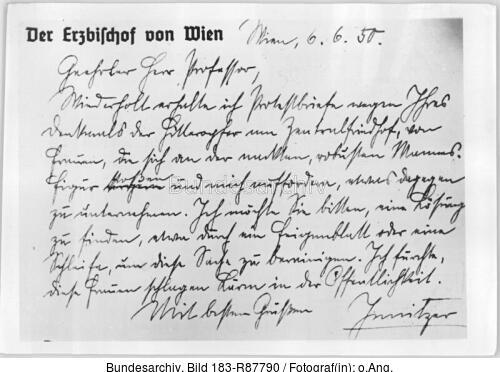 Der Erzbischof von Wien Wien, 6. 6. 50.
Geehrter Herr Professor,
Wiederholt erhalte ich Protestbriefe wegen Ihres
Denkmals der Hitleropfer am Zentralfriedhof, von
Frauen, die sich an der nackten, robusten Mannes-
figur stossen und mich auffordern, etwas dagegen
zu unternehmen. Ich möchte Sie bitten, eine Lösung
zu finden, etwa durch ein Feigenblatt oder eine
Schleife, um diese Sache zu bereinigen. Ich fürchte,
diese Frauen schlagen Lärm in der Öffentlichkeit.
Mit besten Grüßen Innitzer
Bundesarchiv
Bundesarchiv, Bild 183-R87790 / Fotograf(in): o.Ang.